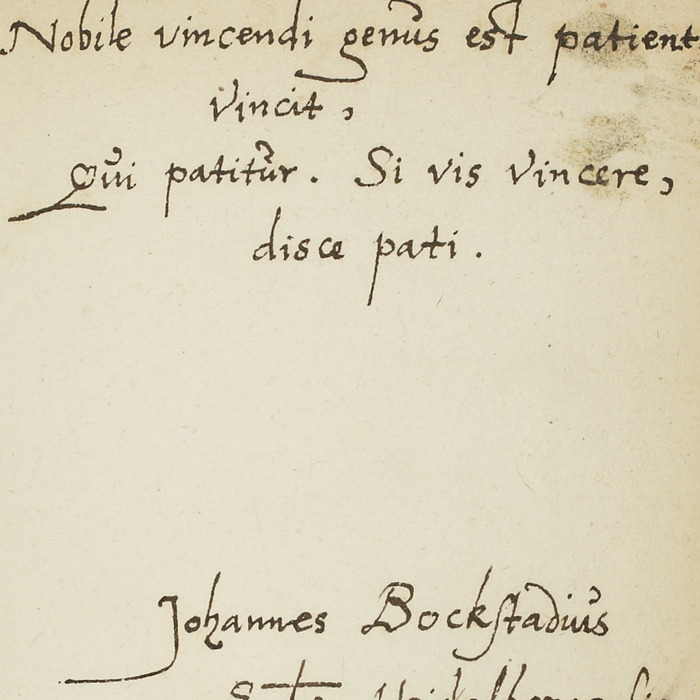 Nobile vincendi genus est patient
vincit,
Qui patitur. Si vis vincere,
disce pati.
Johannes Bockstadius